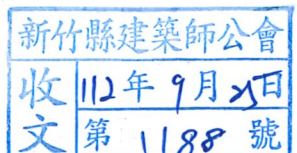 新竹縣建築師公會
收文
112年9月25日
第1188號